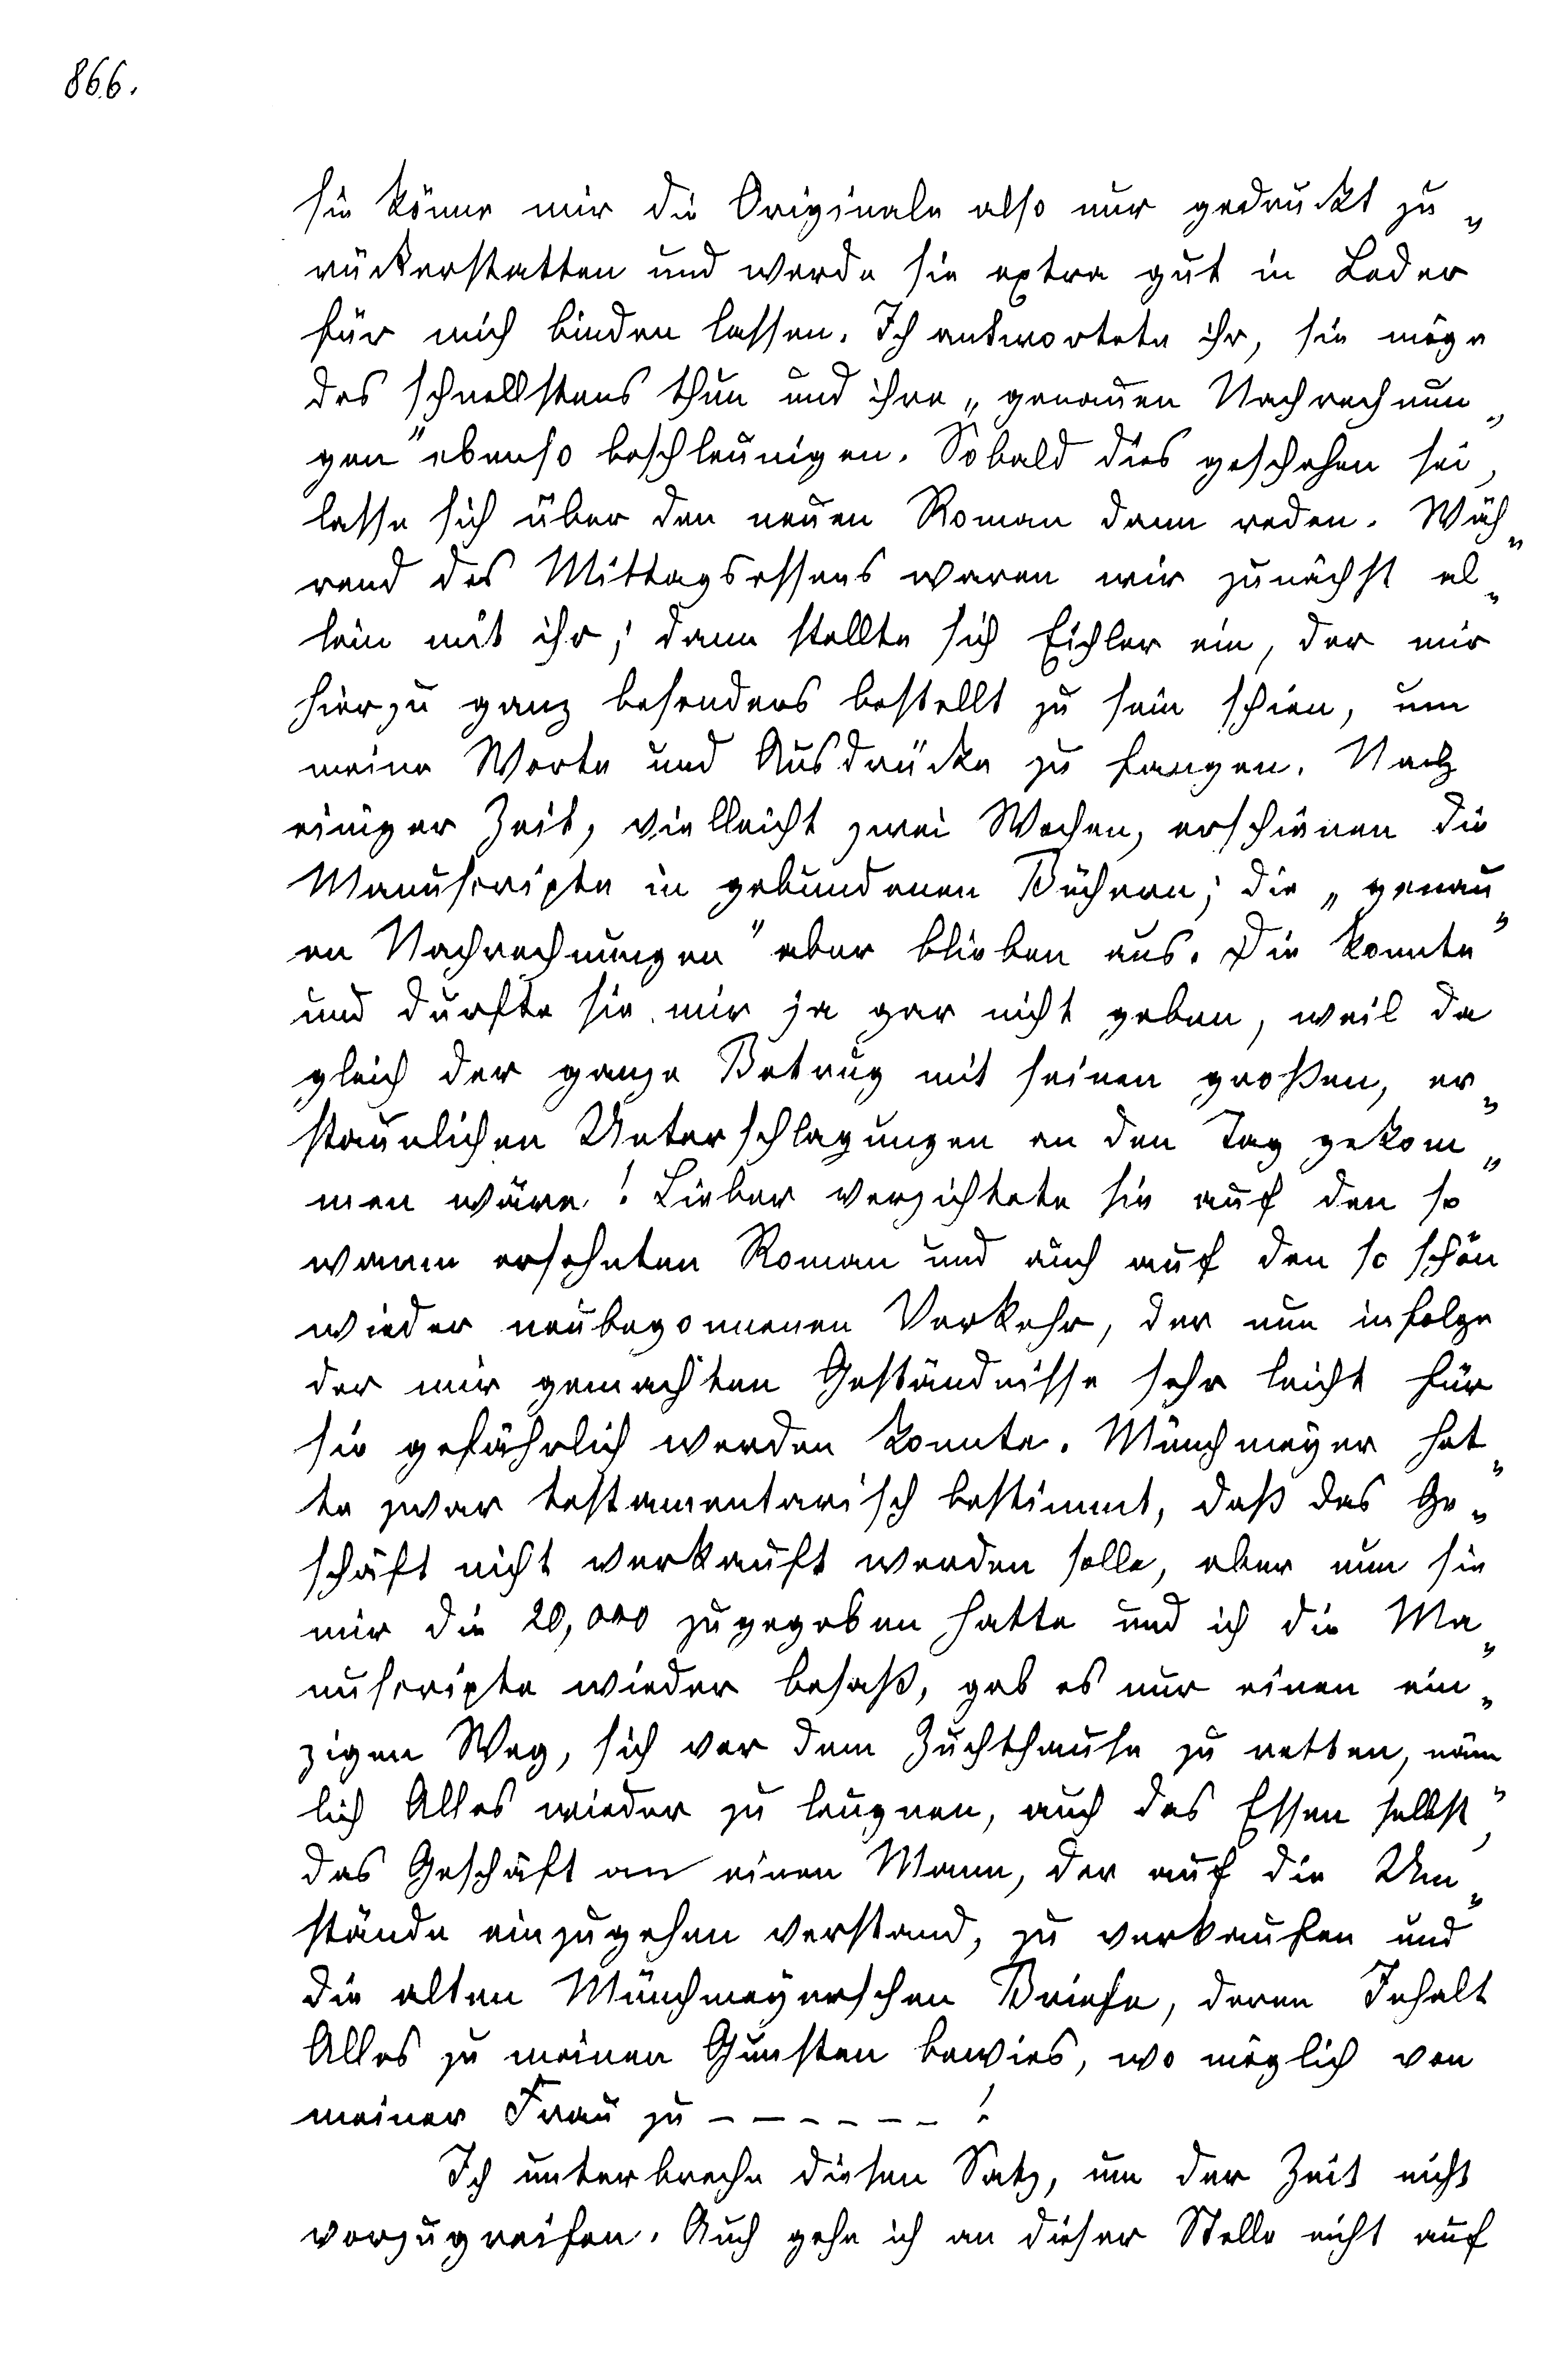 866.
sie könne mir die Originale also nur gedruckt zu„
rückerstatten und werde sie extra gut in Leder
für mich binden lassen. Ich antwortete ihr, sie möge
das schnellstens thun und ihre „genauen Nachrechnun„
gen" ebenso beschleunigen. Sobald dies geschehen sei,
lasse sich über den neuen Roman dann reden. Wäh„
rend des Mittagsessens waren wir zunächst al„
lein mit ihr; dann stellte sich Eichler ein, der mir
hierzu ganz besonders bestellt zu sein schien, um
meine Worte und Ausdrücke zu fangen. Nach
einiger Zeit, vielleicht zwei Wochen, erschienen die
Manuscripte in gebundenen Büchern; die „genau„
en Nachrechnungen" aber blieben aus. Die konnte
und durfte sie mir ja gar nicht geben, weil da
gleich der ganze Betrug mit seinen großen, er„
staunlichen Unterschlagungen an den Tag gekom„
men wäre! Lieber verzichtete sie auf den so
warm ersehnten Roman und auch auf den so schön
wieder neubegonnenen Verkehr, der nun infolge
der mir gemachten Geständnisse sehr leicht für
sie gefährlich werden konnte. Münchmeyer hat„
te zwar testamentarisch bestimmt, daß das Ge„
schäft nicht verkauft werden solle, aber nun sie
mir die 20,000 zugegeben hatte und ich die Ma„
nuscripte wieder besaß, gab es nur einen ein„
zigen Weg, sich vor dem Zuchthause zu retten, näm„
lich Alles wieder zu leugnen, auch das Essen selbst,
das Geschäft an einen Mann, der auf die Um„
stände einzugehen verstand, zu verkaufen und
die alten Münchmeyerschen Briefe, deren Inhalt
Alles zu meinen Gunsten bewies, wo möglich von
meiner Frau zu – – – – – – !
Ich unterbreche diesen Satz, um der Zeit nicht
vorzugreifen. Auch gehe ich an dieser Stelle nicht auf